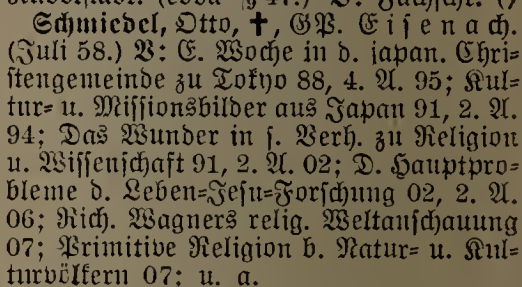 Schmiedel, Otto, ✝, GP. Eisenach.
(Juli 58.) V: E. Woche in d. japan. Chri-
stengemeinde zu Tokyo 88, 4. A. 95; Kul-
tur- u. Missionsbilder aus Japan 91, 2. A.
94; Das Wunder in s. Verh. zu Religion
u. Wissenschaft 91, 2. A. 02; D. Hauptpro-
bleme d. Leben-Jesu-Forschung 02, 2. A.
06; Rich. Wagners relig. Weltanschauung
07; Primitive Religion b. Natur- u. Kul-
turvölkern 07; u. a.